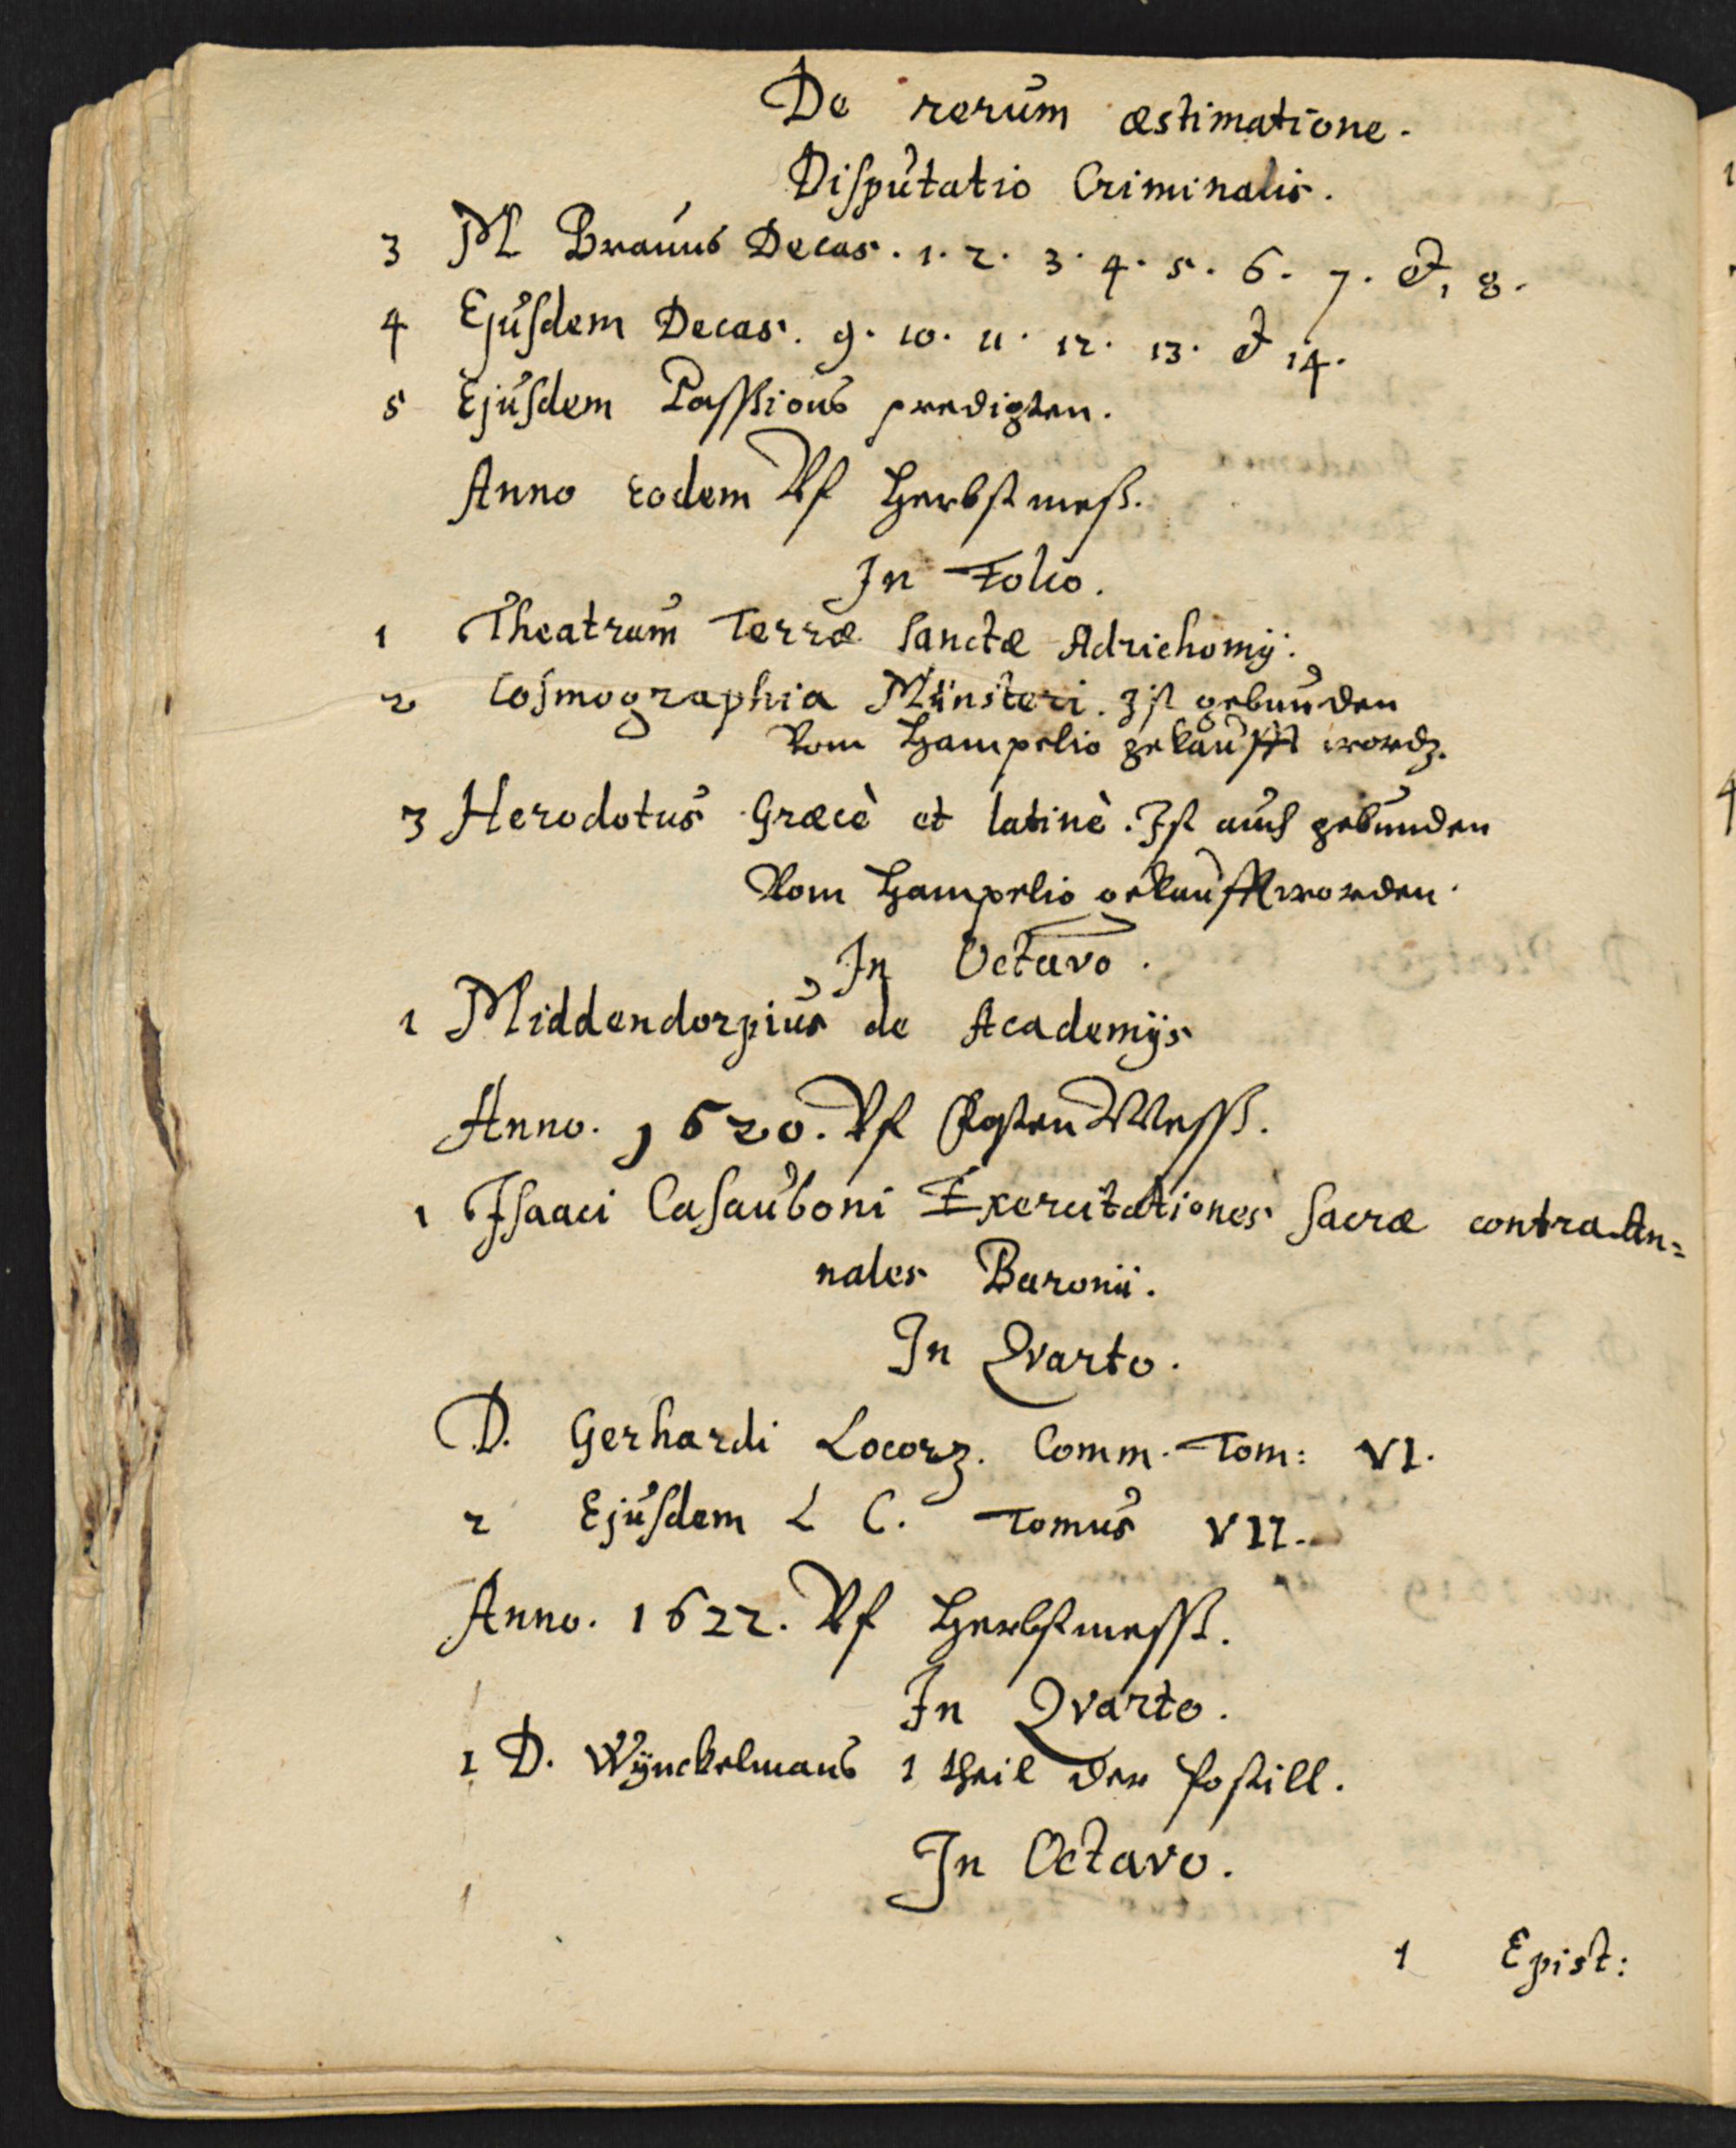 De rerum æstimatione.
Disputatio Criminalis.
3 M Brauns Decas. 1. 2. 3. 4. 5. 6. 7. et, 8.
4 Ejusdem Decas. 9. 10. 11. 12. 13. et 14.
5 Ejusdem Passions predigten.
Anno eodem Vf Herbstmeß.
In Folio.
1 Theatrum Terræ Sanctæ Adrichomij.
2 Cosmographia Münsteri. Ist gebunden
Vom Hampelio gekaufft word.
3 Herodotus Græcè et latinè. Ist auch gebunden
Vom Hampelio gekaufft worden.
In Octavo.
1 Middendorpius de Academijs
Anno. 1620. Vf Fasten Mess.
1 Isaaci Casauboni Exercitationes Sacræ contra An=
nales Baronii.
In Qvarto.
D. Gerhardi Locorꝝ. Comm. Tom: VI.
2 Ejusdem L C. Tomus VII.
Anno. 1622. Vf Herbstmess.
In Qvarto.
1 D. Wÿnckelmans 1 theil der Postill.
In Octavo.
1 Epist: